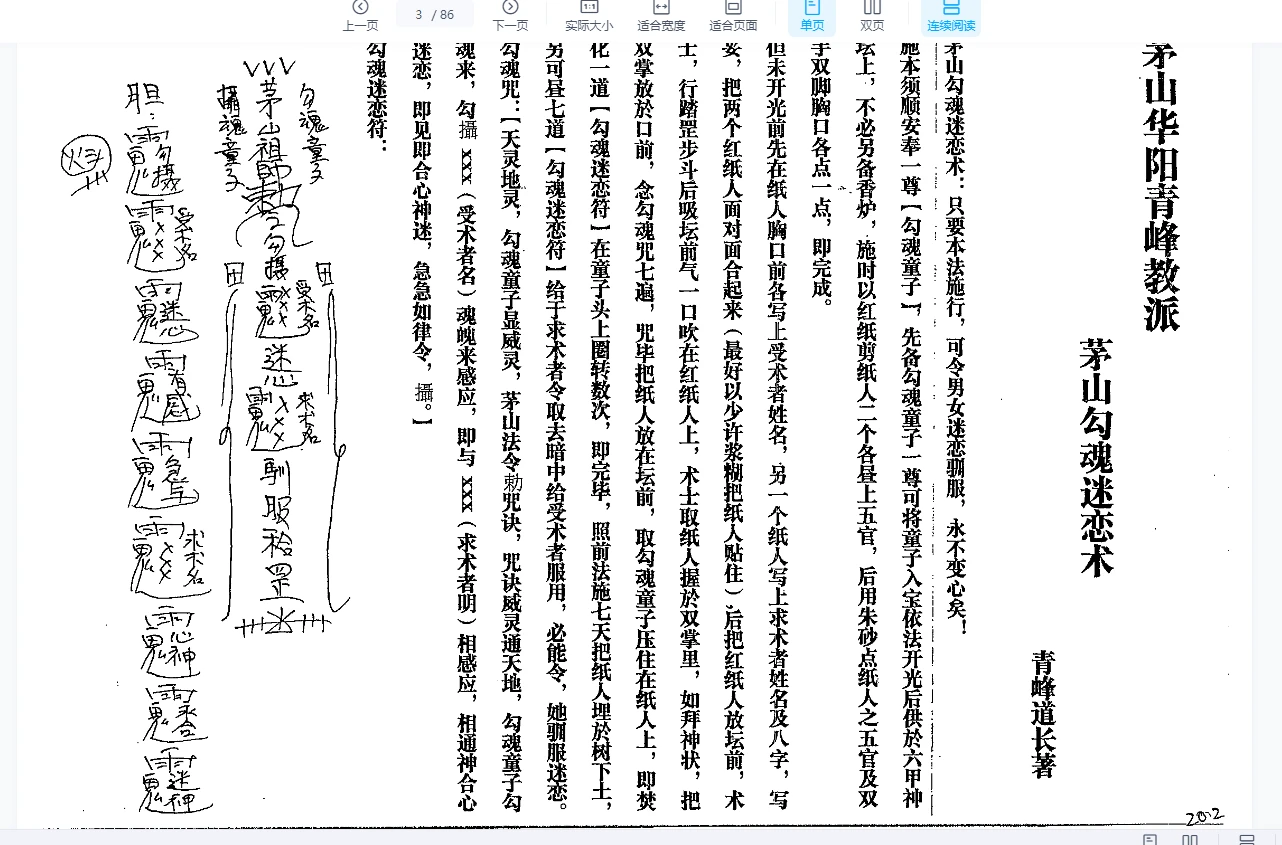 上一页
3 / 86
下一页
实际大小
适合宽度
适合页面
单页
双页
连续阅读
茅山华阳青峰教派
茅山勾魂迷恋术
青峰道长著
茅山勾魂迷恋术：只要本法施行，可令男女迷恋驯服，永不变心矣！
施本须顺安奉一尊【勾魂童子】，先备勾魂童子一尊可将童子入宝依法开光后供於六甲神
坛上，不必另备香炉，施时以红纸剪纸人二个各昼上五官，后用朱砂点纸人之五官及双
手双脚胸口各点一点，即完成。
但未开光前先在纸人胸口前各写上受术者姓名，另一个纸人写上求术者姓名及八字，写
妥，把两个红纸人面对面合起来（最好以少许浆糊把纸人贴住）,后把红纸人放坛前，术
士，行踏罡步斗后吸坛前气一口吹在红纸人上，术士取纸人握於双掌里，如拜神状，把
双掌放於口前，念勾魂咒七遍，咒毕把纸人放在坛前，取勾魂童子压住在纸人上，即焚
化一道【勾魂迷恋符】在童子头上圈转数次，即完毕，照前法施七天把纸人埋於树下土，
另可昼七道【勾魂迷恋符】给于求术者令取去暗中给受术者服用，必能令，她驯服迷恋。
勾魂咒：【天灵地灵，勾魂童子显威灵，茅山法令勅咒诀，咒诀威灵通天地，勾魂童子勾
魂来，勾攝 xxx（受术者名）魂魄来感应，即与 xxx（求术者明）相感应，相通神合心
迷恋，即见即合心神迷，急急如律令，攝。】
勾魂迷恋符：
勾魂童子
茅山祖師勅令勾攝
xxx
受术名
迷恋
xxx
求术名
馴服
罡
攝魂童子
胆：
勾攝
xxx
受术名
迷恋
有感
xxx
求术名
心神
迷神
20.2